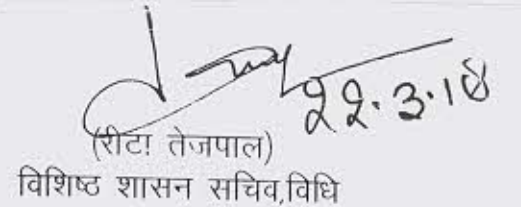 22.3.18
(रीटा तेजपाल)
विशिष्ठ शासन सचिव,विधि